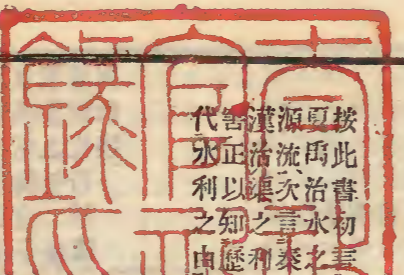 按此書初言
夏禹治水之
源流次言秦
漢治渠之利
害正以知歷
代水利之由